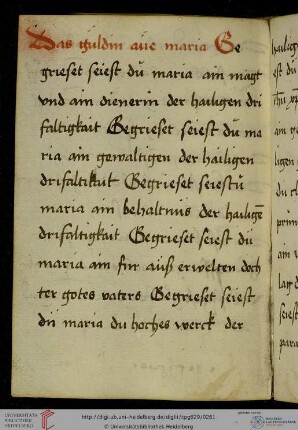 Das guldin aue maria Ge
grieset seiest dů maria ain magt
vnd ain dienerin der hailigen dri
faltigkait Begrieset seiest dů ma
ria ain gewaltigen der hailigen
drifaltikait Gegrieset seiestů
maria ain behaltnus der hailigē
drifaltigkait Gegrieset seiest dů
maria ain für auß erwelten doch
ter gotes vaters Begrieset seiest
dů maria du hoches werck der
UNIVERSITÄTS-
BIBLIOTHEK
HEIDELBERG
http://digi.ub.uni-heidelberg.de/diglit/cpg629/0261
© Universitätsbibliothek Heidelberg